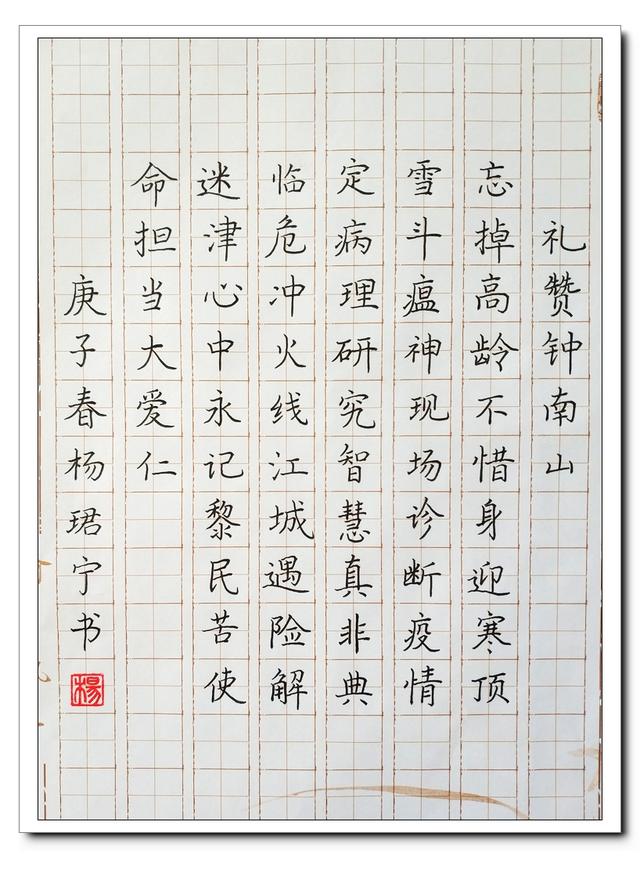 礼赞钟南山
忘掉高龄不惜身迎寒顶
雪斗瘟神现场诊断疫情
定病理研究智慧真非典
临危冲火线江城遇险解
迷津心中永记黎民苦使
命担当大爱仁
庚子春杨珺宁书
楊